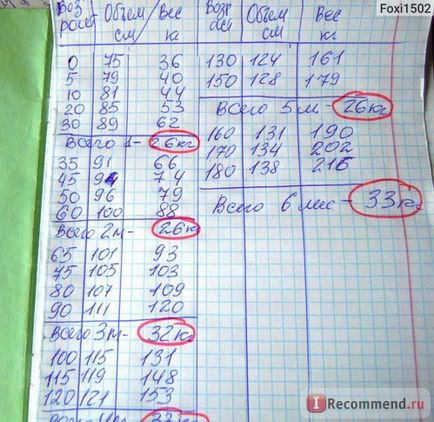 Foxi1502
Возраст Объем см Вес кг
0 75 36
5 79 40
10 81 44
20 85 53
30 89 62
Всего 1- 26кг
35 91 66
45 94 74
50 96 79
60 100 88
Всего 2м- 26кг
65 101 93
75 105 103
80 107 109
90 111 120
Всего 3м- 32кг
100 115 131
115 119 148
120 121 153
Объем см Вес кг
130 124 161
150 128 179
Всего 5м- 26кг
160 131 190
170 134 202
180 138 215
Всего 6 мес- 33кг
IRecommend.ru